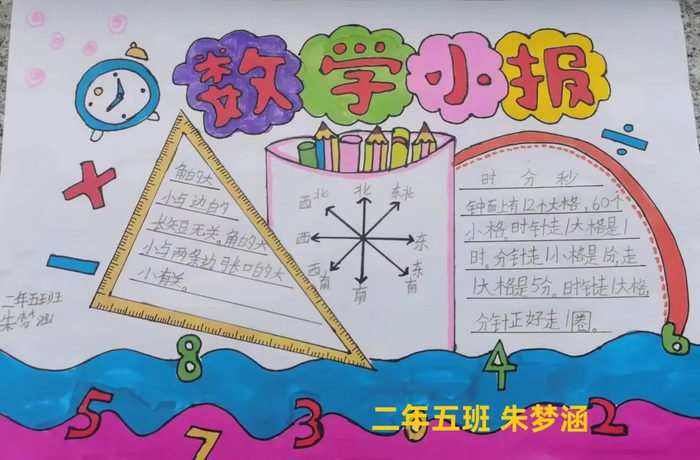 数学小报
角的大
小与边的
长短无关。角的大
小与两条边张口的大
小有关。
西北 北 东北
西 东
西南 南 东南
时分秒
钟面上有12个大格,60个
小格。时针走1大格是1
时。分针走1小格是1分,走
1大格是5分。时针走1大格
分针正好走1圈。
二年五班
朱梦涵
8 4 6
5 7 3 6 2
二年五班 朱梦涵